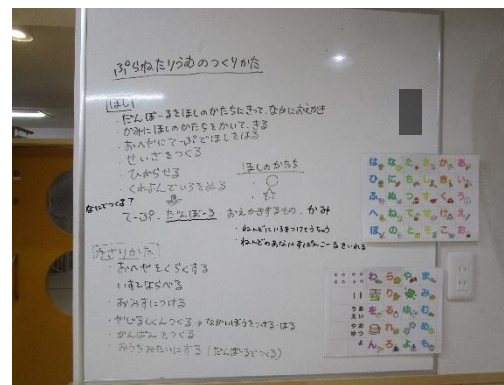 ぷらねたりうむのつくりかた
ほし
・だんぼーるをほしのかたちにきって、なかにおえかき
・かみにほしのかたちをかいて、きる
・おへやにてーぷでほしをはる
・せいざをつくる
・ひからせる
・くれよんでいろをぬる
ほしのかたち
なにでつくる?
てーぷ・だんぼーる・おえかきするもの・かみ
・ねんどにいろをつけてうちゅう
・ねんどのあなにすぱんこーるをいれる
かざりかた
・おへやをくらくする
・いすをならべる
・おみずにつける
・かんばんをつくる
・おうちみたいにする(だんぼーるでつくる)
は な た さ か あ
ひ に ち し き い
ふ ぬ つ す く う
へ ね て せ け え
ほ の と そ こ お
わ ら や ま
を る ゆ む
ん ろ よ も